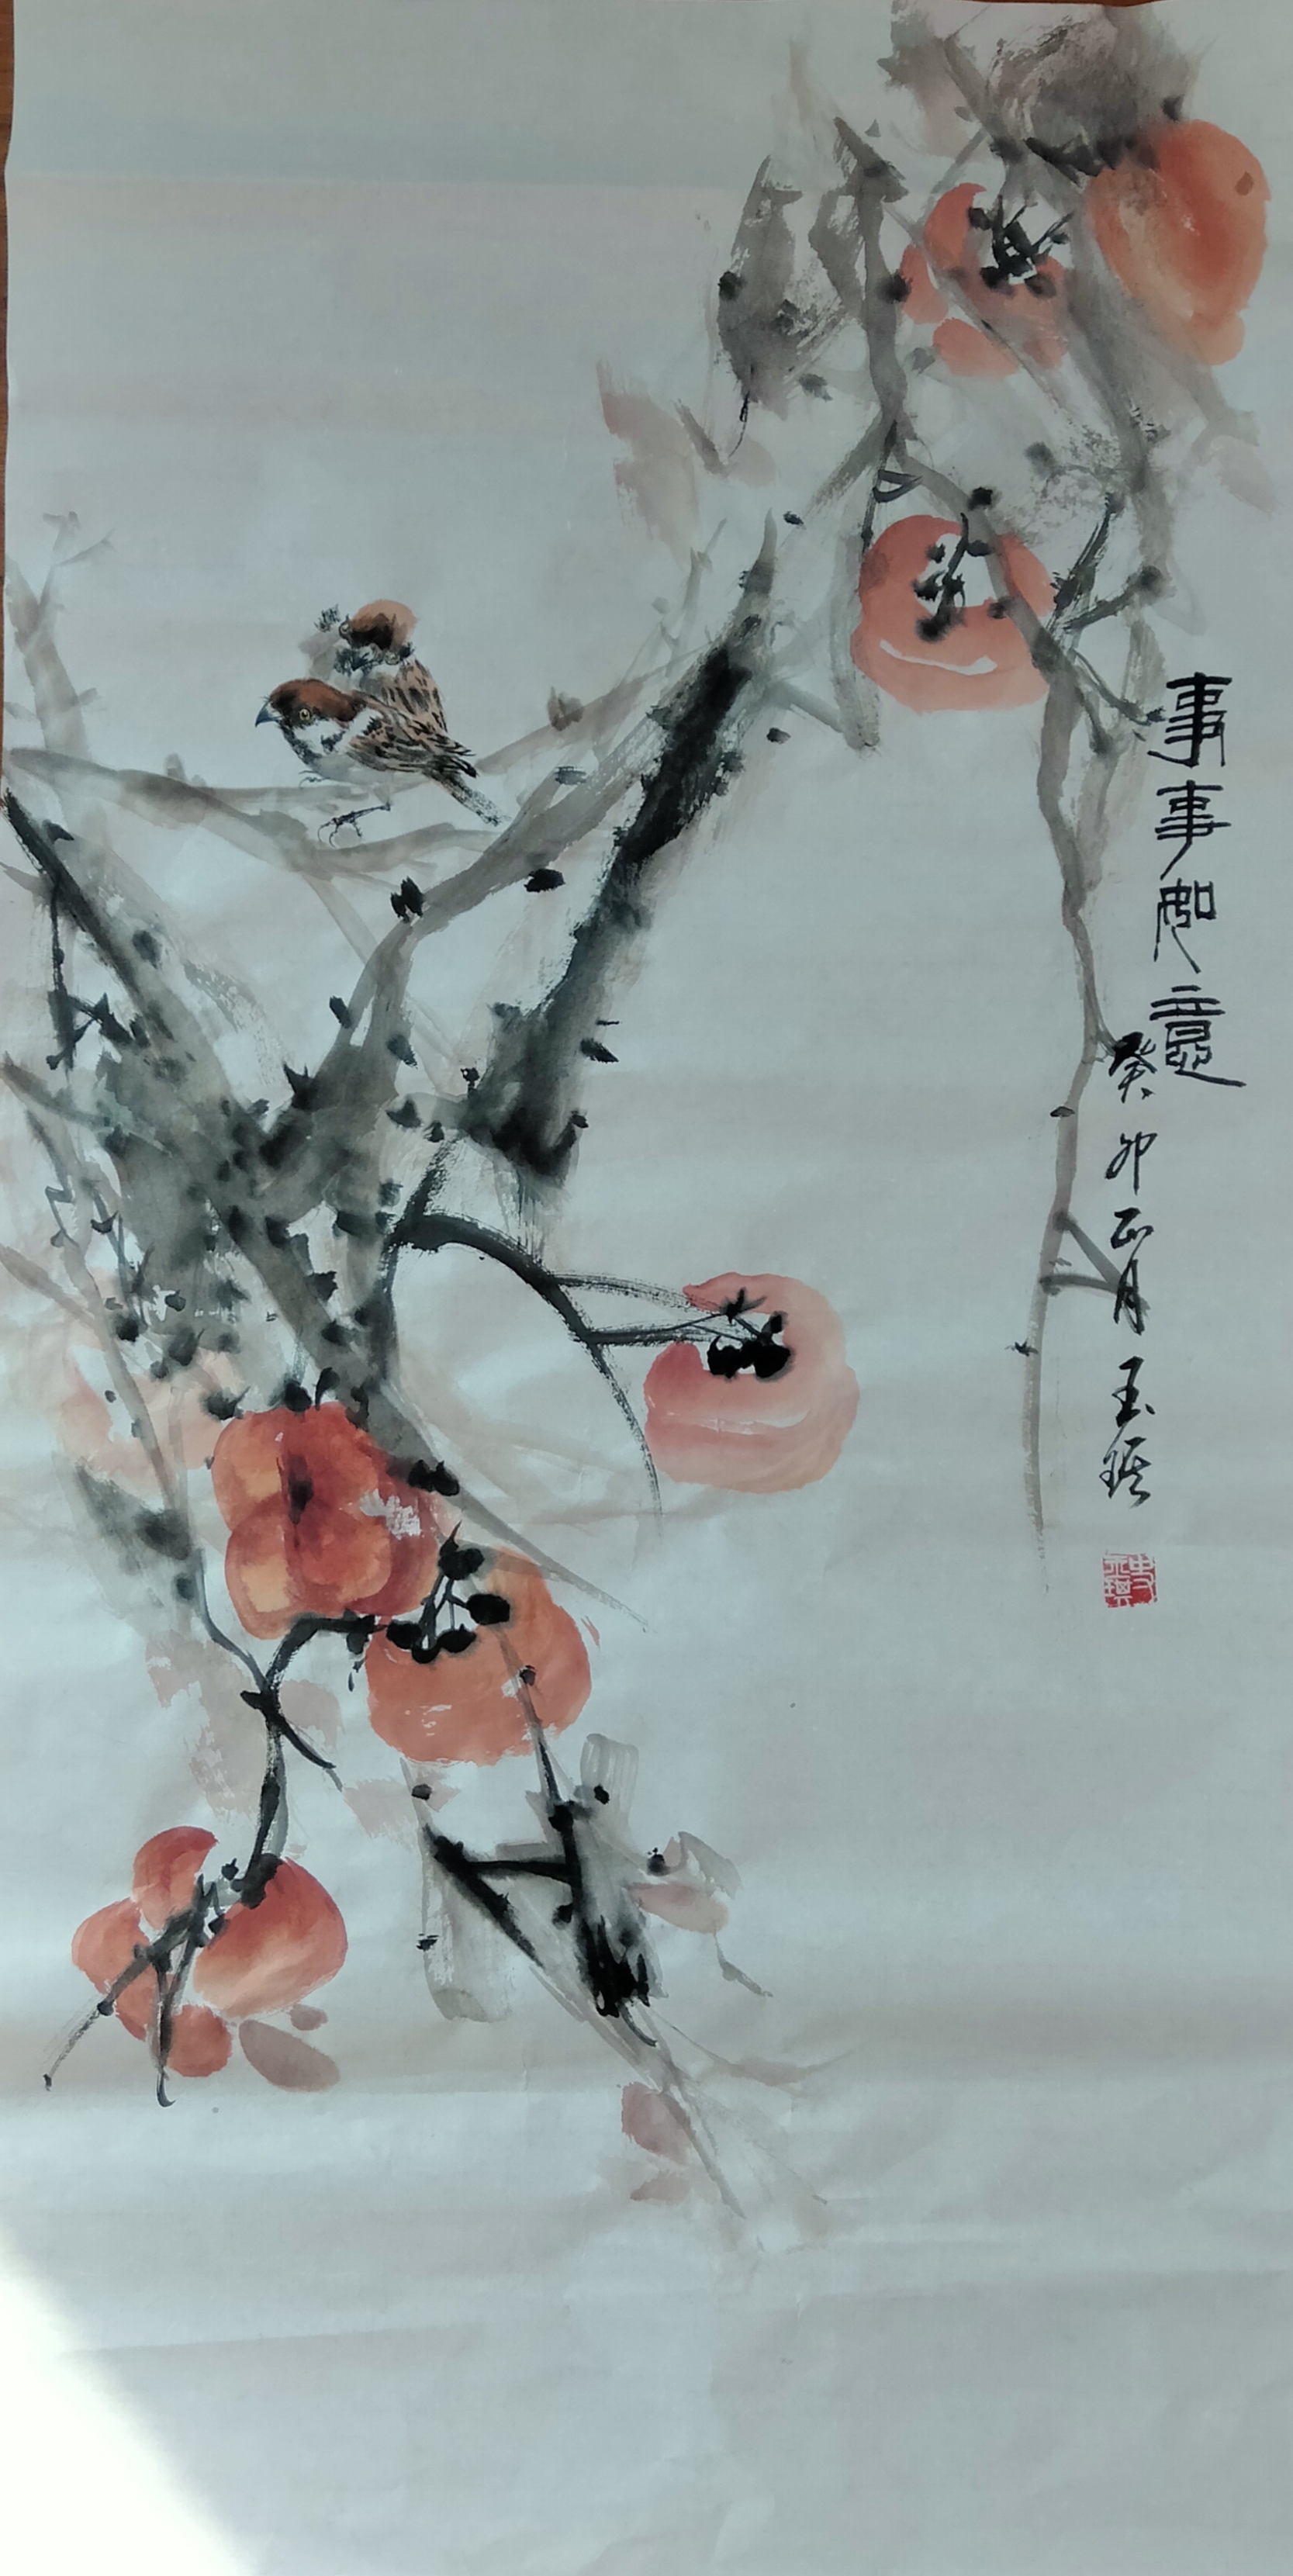 事事如意
癸卯正月玉琪